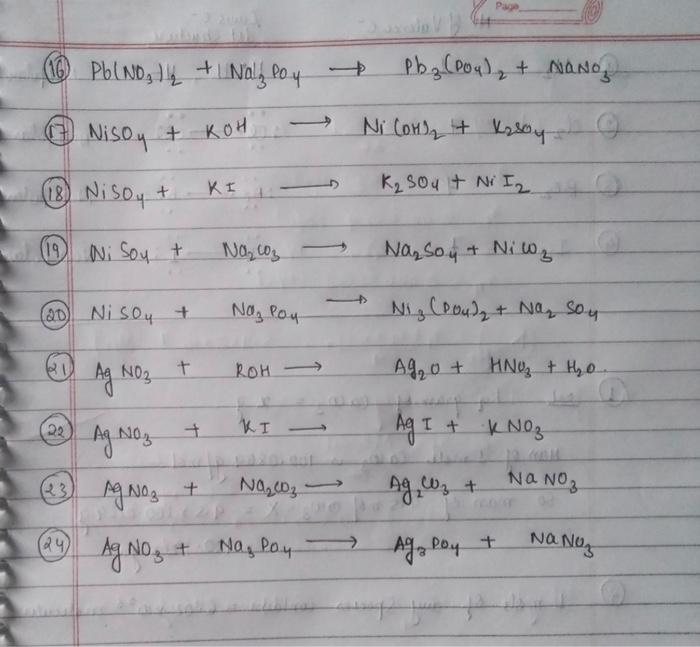 Page
(16) Pb(NO3)2 + Na3PO4 → Pb3(PO4)2 + NaNO3
(17) NiSO4 + KOH → Ni(OH)2 + K2SO4
(18) NiSO4 + KI → K2SO4 + NiI2
(19) NiSO4 + Na2CO3 → Na2SO4 + NiCO3
(20) NiSO4 + Na3PO4 → Ni3(PO4)2 + Na2SO4
(21) AgNO3 + KOH → Ag2O + HNO3 + H2O.
(22) AgNO3 + KI → AgI + KNO3
(23) AgNO3 + Na2CO3 → Ag2CO3 + NaNO3
(24) AgNO3 + Na3PO4 → Ag3PO4 + NaNO3